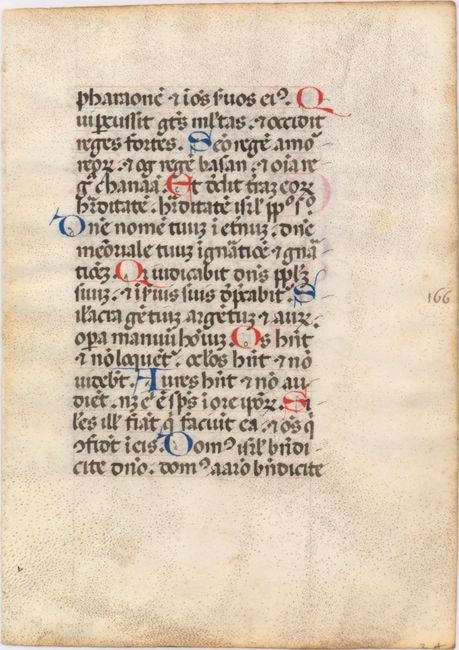 pharaonē ⁊ ī oēs s̄uos eiꝰ. Q
ui ꝑcussit gētes ml̄tas. ⁊ occidit
reges fortes. Seō regē amō
reoꝝ. ⁊ og regē basan. ⁊ oīa re
gᵃ chanaā. Et dēdit trāꝫ eoꝝ
hr̄ditatē. hr̄ditatē isrl̄ ppº sº.
Dn̄e nomē tuuꝫ ī etn̄uꝫ. dn̄e
memōriale tuuꝫ ī gn̄atiōē ⁊ gn̄a
tiōeꝫ. Qr̄ iudicabit dn̄s ppl̄ꝫ
suuꝫ. ⁊ ī s̄uis suis dp̄cabit. S
il̄acra gētiuꝫ argētuꝫ ⁊ auꝝ.
oꝑa manuū hoīuꝫ. Os hn̄t
⁊ nō loquet. ocl̄os hn̄t ⁊ nō
uidebt̄. Aures hn̄t ⁊ nō au
diēt. nꝫ ē ē sp̄s ī ore ip̄oꝝ. Si
l̄es ill' fiāt q̄ faciūt ea. ⁊ oēs q̄
ꝯfidt̄ ī eis. Domꝰ isrl̄ bn̄di
cite dn̄o. domꝰ aarō bn̄dicite
166